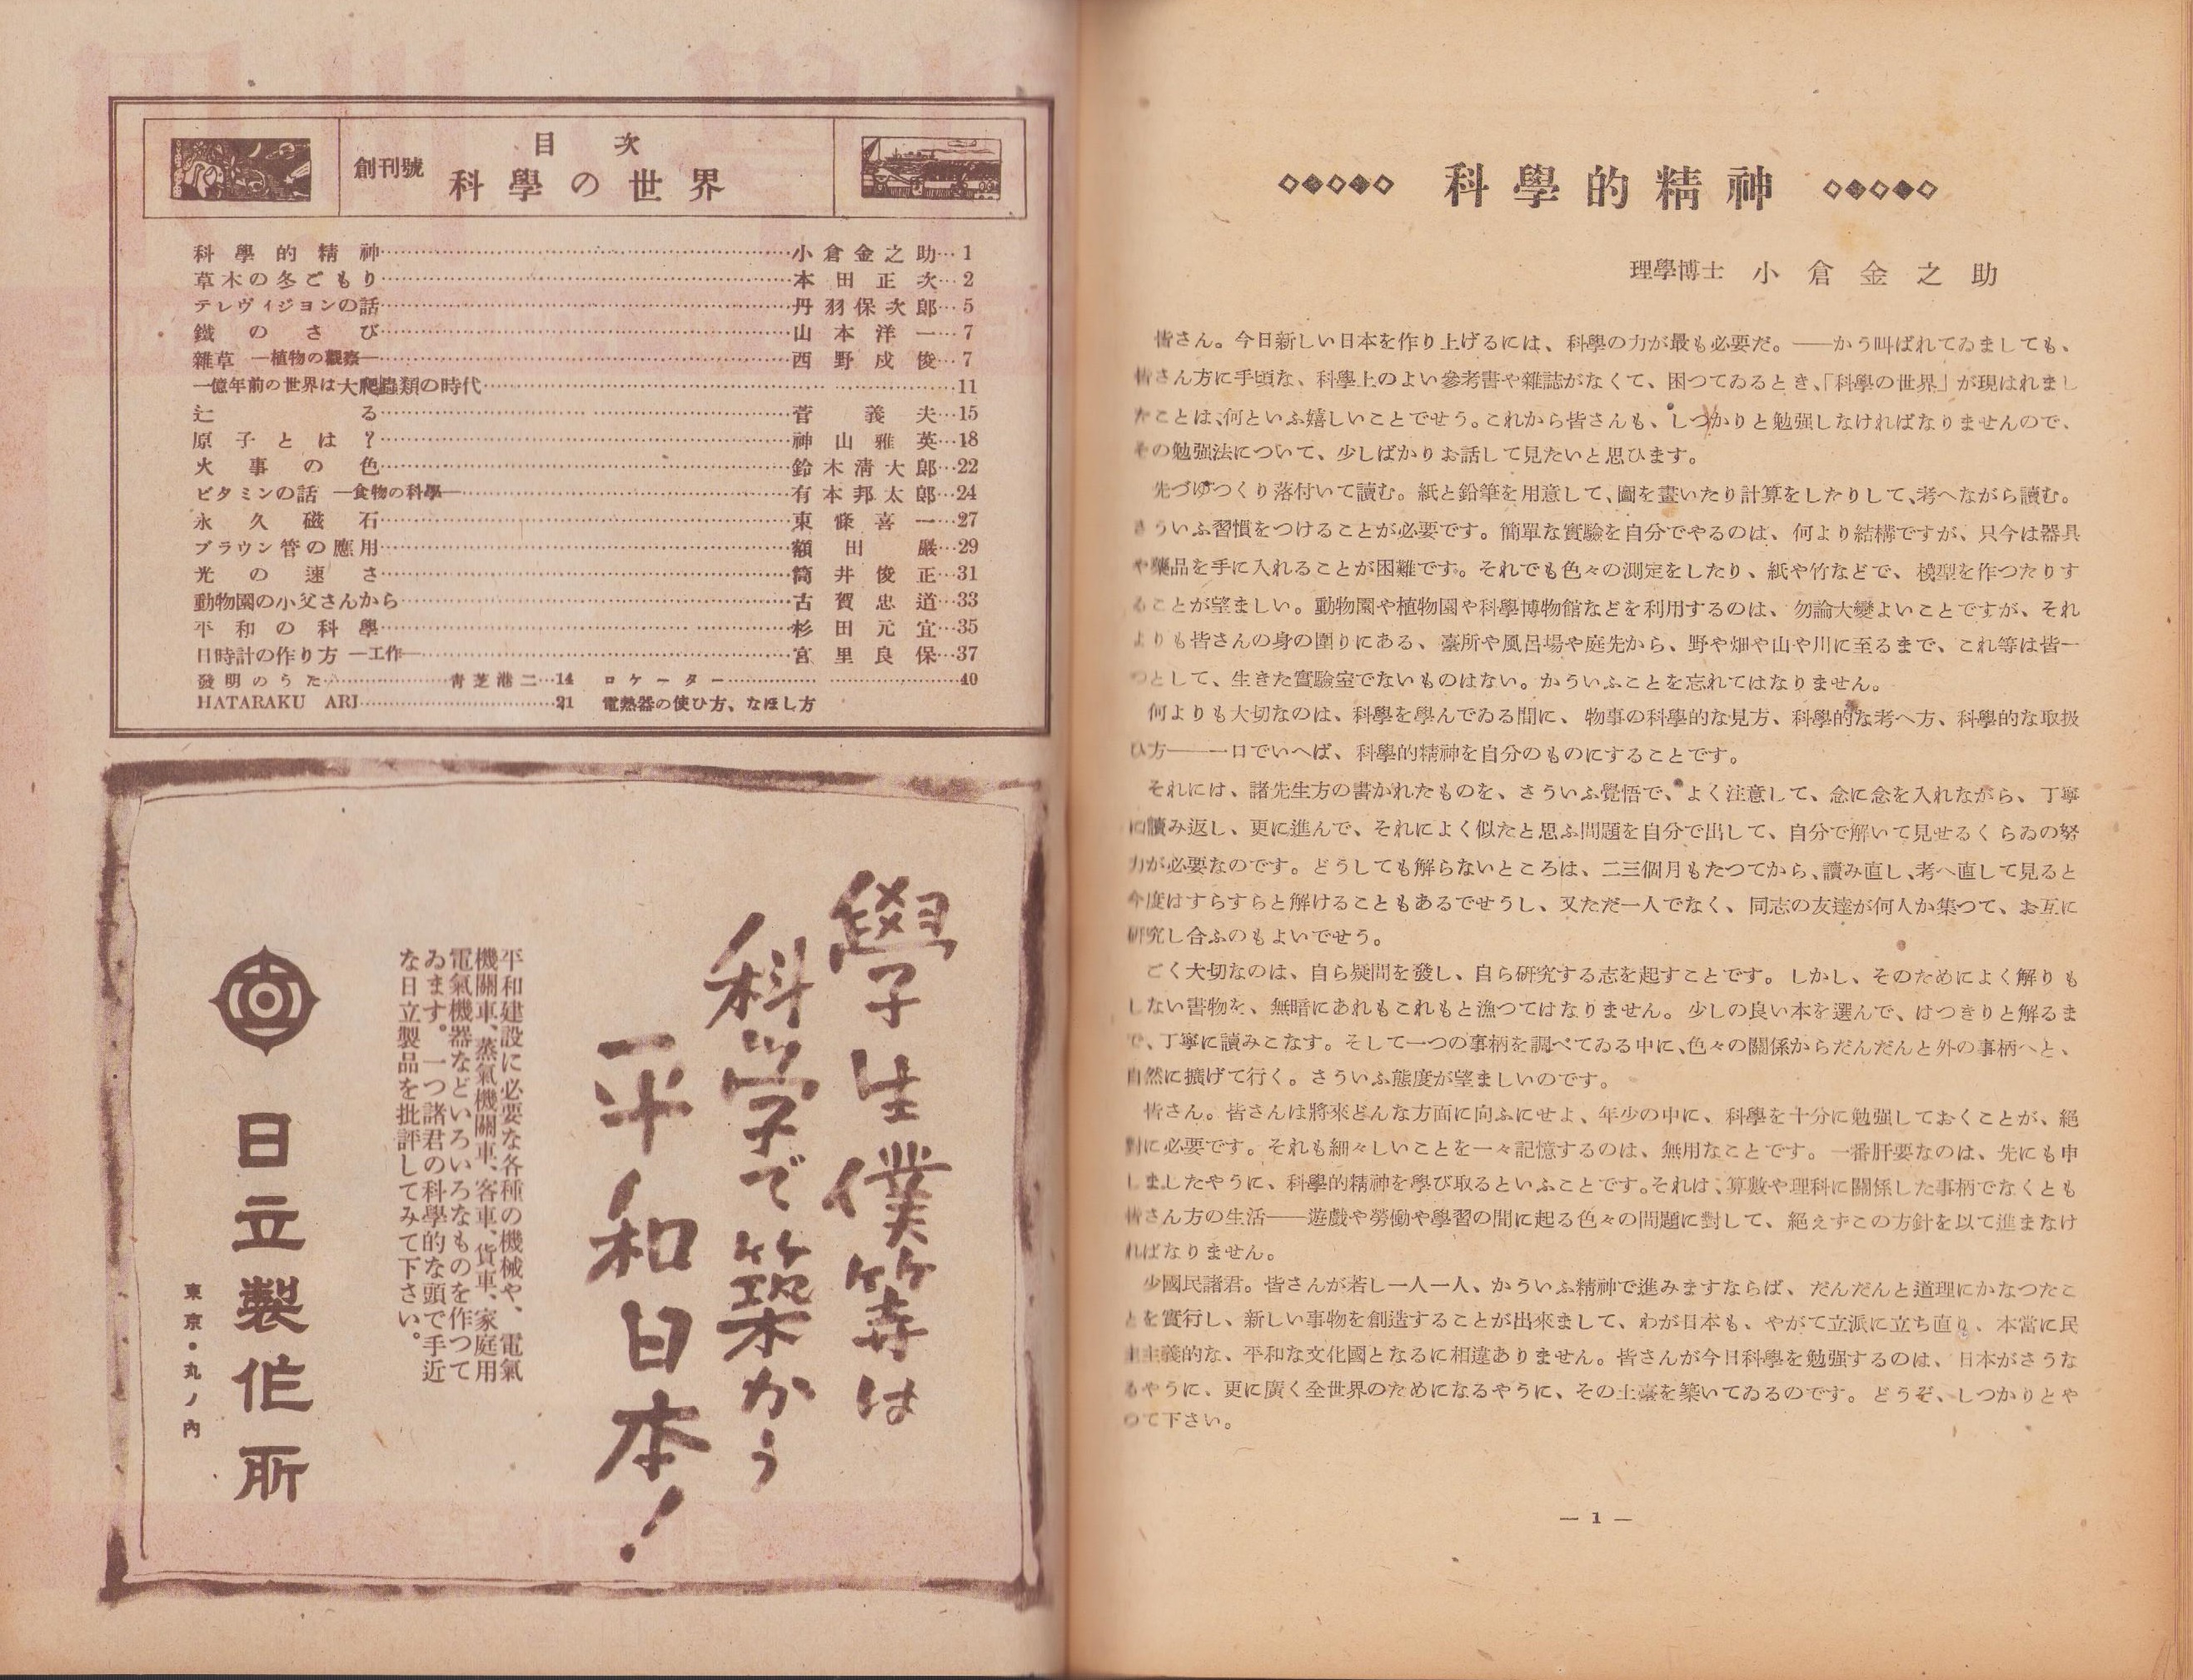 目次
創刊號
科學の世界
科學的精神……小倉金之助…1
草木の冬ごもり……本田正次…2
テレヴィジョンの話……丹羽保次郎…5
鐵のさび……山本洋一…7
雜草 ―植物の觀察―……西野戍俊…7
一億年前の世界は大爬蟲類の時代……11
辷る……菅義夫…15
原子とは?……神山雅英…18
火事の色……鈴木淸太郎…22
ビタミンの話 ―食物の科學―……有本邦太郎…24
永久磁石……東條喜一…27
ブラウン管の應用……額田巖…29
光の速さ……筒井俊正…31
動物園の小父さんから……古賀忠道…33
平和の科學……杉田元宜…35
日時計の作り方 ―工作―……宮里良保…37
發明のうた……靑芝港二…14 ロケーター……40
HATARAKU ARI……21 電熱器の使ひ方、なほし方
學生僕等は
科学で築かう
平和日本!
平和建設に必要な各種の機械や、電氣
機關車、蒸氣機關車、客車、貨車、家庭用
電氣機器などいろいろなものを作つて
ゐます。一つ諸君の科學的な頭で手近
な日立製品を批評してみて下さい。
日立製作所
東京・丸ノ內
科學的精神
理學博士 小倉金之助
皆さん。今日新しい日本を作り上げるには、科學の力が最も必要だ。――かう叫ばれてゐましても、
皆さん方に手頃な、科學上のよい參考書や雜誌がなくて、困つてゐるとき、「科學の世界」が現はれまし
たことは、何といふ嬉しいことでせう。これから皆さんも、しつかりと勉强しなければなりませんので、
その勉强法について、少しばかりお話して見たいと思ひます。
先づゆつくり落付いて讀む。紙と鉛筆を用意して、圖を畫いたり計算をしたりして、考へながら讀む。
さういふ習慣をつけることが必要です。簡單な實驗を自分でやるのは、何より結構ですが、只今は器具
や藥品を手に入れることが困難です。それでも色々の測定をしたり、紙や竹などで、模型を作つたりす
ることが望ましい。動物園や植物園や科學博物館などを利用するのは、勿論大變よいことですが、それ
よりも皆さんの身の圍りにある、臺所や風呂場や庭先から、野や畑や山や川に至るまで、これ等は皆一
つとして、生きた實驗室でないものはない。かういふことを忘れてはなりません。
何よりも大切なのは、科學を學んでゐる間に、物事の科學的な見方、科學的な考へ方、科學的な取扱
ひ方――一口でいへば、科學的精神を自分のものにすることです。
それには、諸先生方の書かれたものを、さういふ覺悟で、よく注意して、念に念を入れながら、丁寧
に讀み返し、更に進んで、それによく似たと思ふ問題を自分で出して、自分で解いて見せるくらゐの努
力が必要なのです。どうしても解らないところは、二三個月もたつてから、讀み直し、考へ直して見ると
今度はすらすらと解けることもあるでせうし、又ただ一人でなく、同志の友達が何人か集つて、お互に
研究し合ふのもよいでせう。
ごく大切なのは、自ら疑問を發し、自ら研究する志を起すことです。しかし、そのためによく解りも
しない書物を、無暗にあれもこれもと漁つてはなりません。少しの良い本を選んで、はつきりと解るま
で、丁寧に讀みこなす。そして一つの事柄を調べてゐる中に、色々の關係からだんだんと外の事柄へと、
自然に擴げて行く。さういふ態度が望ましいのです。
皆さん。皆さんは將來どんな方面に向ふにせよ、年少の中に、科學を十分に勉强しておくことが、絕
對に必要です。それも細々しいことを一々記憶するのは、無用なことです。一番肝要なのは、先にも申
しましたやうに、科學的精神を學び取るといふことです。それは、算數や理科に關係した事柄でなくとも
皆さん方の生活――遊戲や勞働や學習の間に起る色々の問題に對して、絕えずこの方針を以て進まなけ
ればなりません。
少國民諸君。皆さんが若し一人一人、かういふ精神で進みますならば、だんだんと道理にかなつたこ
とを實行し、新しい事物を創造することが出來まして、わが日本も、やがて立派に立ち直り、本當に民
主主義的な、平和な文化國となるに相違ありません。皆さんが今日科學を勉强するのは、日本がさうな
るやうに、更に廣く全世界のためになるやうに、その土臺を築いてゐるのです。どうぞ、しつかりとや
つて下さい。
― 1 ―